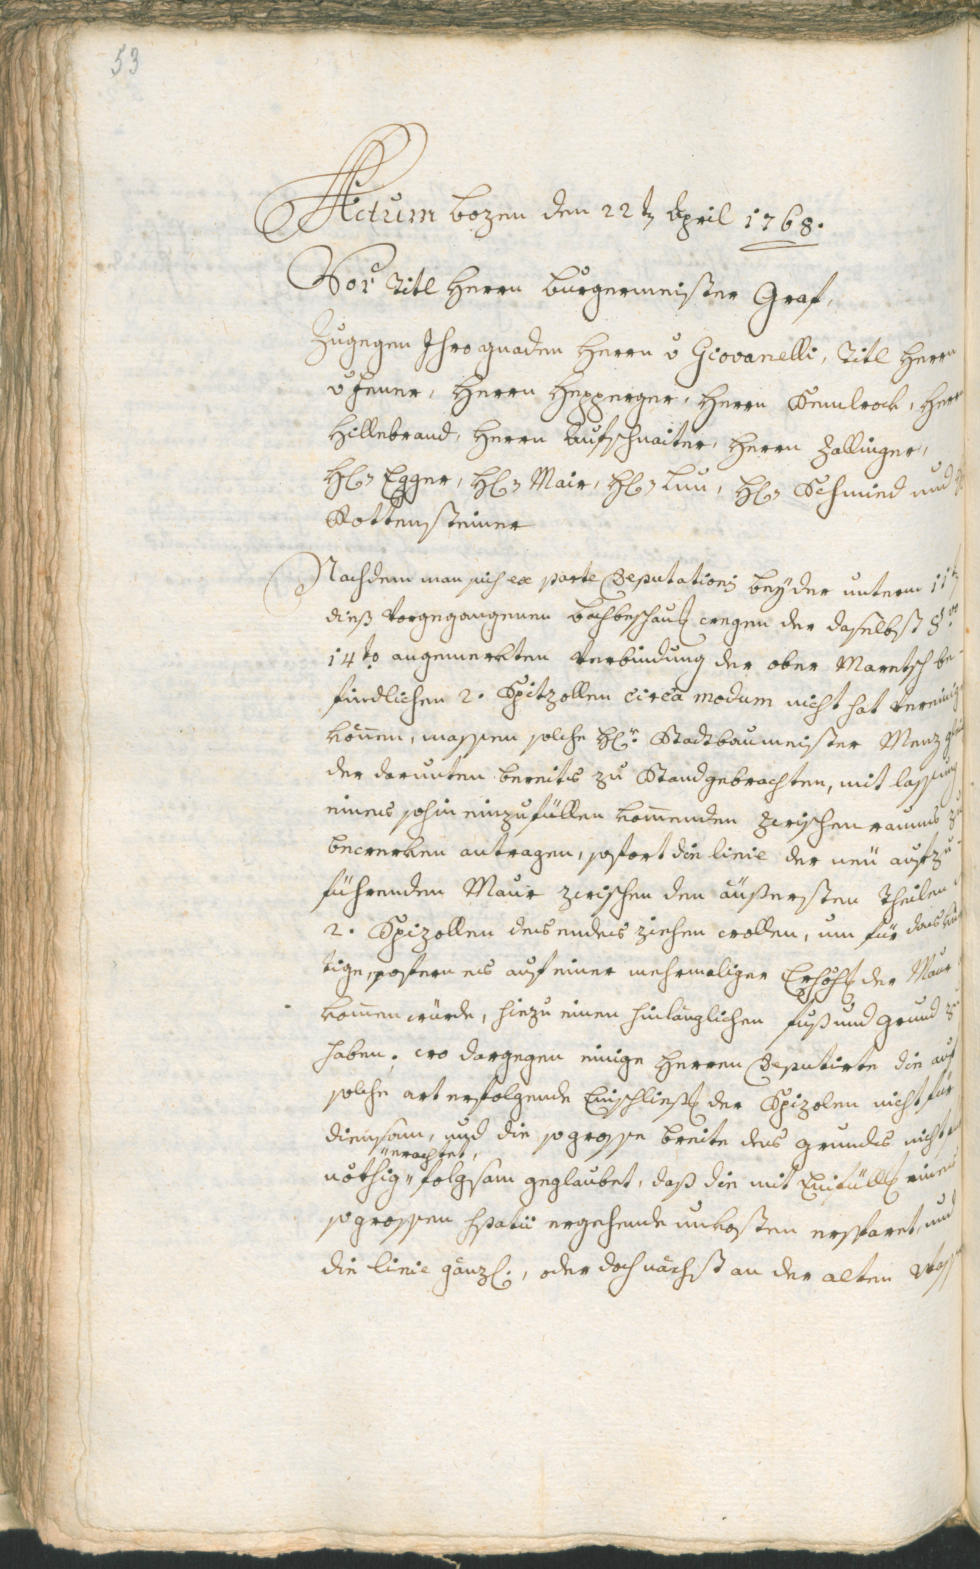 53
Actum bozen den 22t. April 1768.
Vor Titl Herrn burgermeister Graf,
Zugegen Ihro gnaden Herrn v Giovanelli, Titl Herrn
v Jenner, Herrn Hepperger, Herrn Kemlrock, Herr
Hillebrand, Herrn Aufschnaiter, Herrn Zallinger,
H: Egger, H: Mair, H: Luu, H: Schmied und
Rottensteiner
Nachdem man sich ex parte Deputationis beÿ der unterm 11t.
dieß vorgegangenen bachbeschau wegen der daselbst
14to angemerkten verbindung der ober Maretsch be-
findlichen 2. Spitzollen circa modum nicht hat vereinig
können, massen solche H: Stadtbaumeister Menz
der darunten bereits zu Stand gebrachten, mit lassung
eines sohin einzufüllen kommenden zwischen raums zu
bewerken antragen, sofort die linie der neü aufzu-
führenden Maur zwischen den äußersten Theilen
2. Spizollen des endes ziehen wollen, um für das künf
tige, sofern es auf einer mehrmaliger Erhöh: der Maur
kommen würde, hiezu einen hinlänglichen fuß und grund zu
haben; wo dargegen einige Herren Deputirte die auf
solche art erfolgende Einschließ: der Spizolen nicht für
diensam, und die so grosse breite des grundes nicht
erachtet,
nöthig " folgsam geglaubet, daß die mit Einfüll: eines
so grossen spatii ergehende unkosten ersparet, und
die linie gänzl:, oder doch nächst an der alten